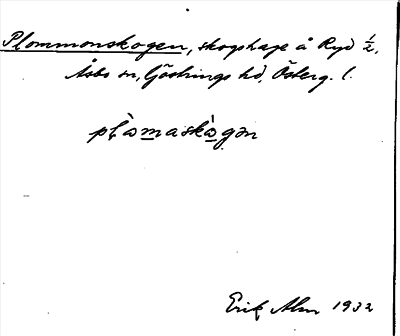 Plommonskogen, skogshage å Ryd ½,
Åsbo sn, Göstrings hd, Österg. l.
pl̥ò̱maskò̱gən
Erik Alm 1932